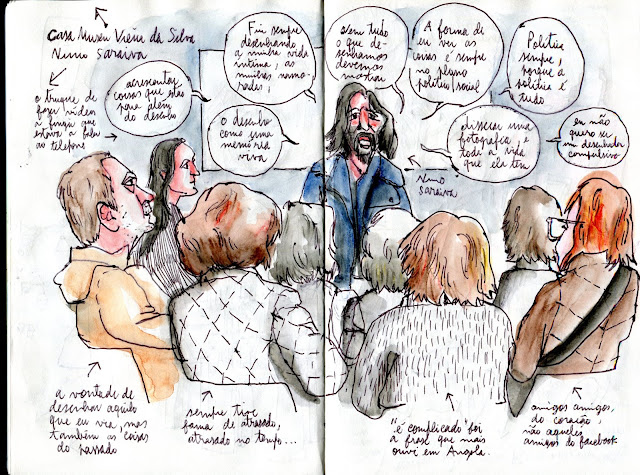 Casa Museu Vieira da Silva
Nuno Saraiva
o truque de
fazer vídeos
a fingir que
estava a falar
ao telefone
acrescentar
coisas que estão
para além
do desenho
Fui sempre
desenhando
a minha vida
íntima, as
minhas namo-
radas,
o desenho
como uma
memória
viva
nem tudo
o que de-
senhamos
devemos
mostrar
A forma de
eu ver as
coisas é sempre
no plano
político social
Política
sempre,
porque a
política é
tudo
dissecar uma
fotografia, e
toda a vida
que ela tem
eu não
quero ser
um desenhador
compulsivo
Nuno
Saraiva
a vontade de
desenhar aquilo
que eu via, mas
também as coisas
do passado
sempre tive
fama de atrasado,
atrasado no tempo...
"é complicado" foi
a frase que mais
ouvi em Angola.
amigos amigos,
do coração,
não aqueles
amigos do facebook